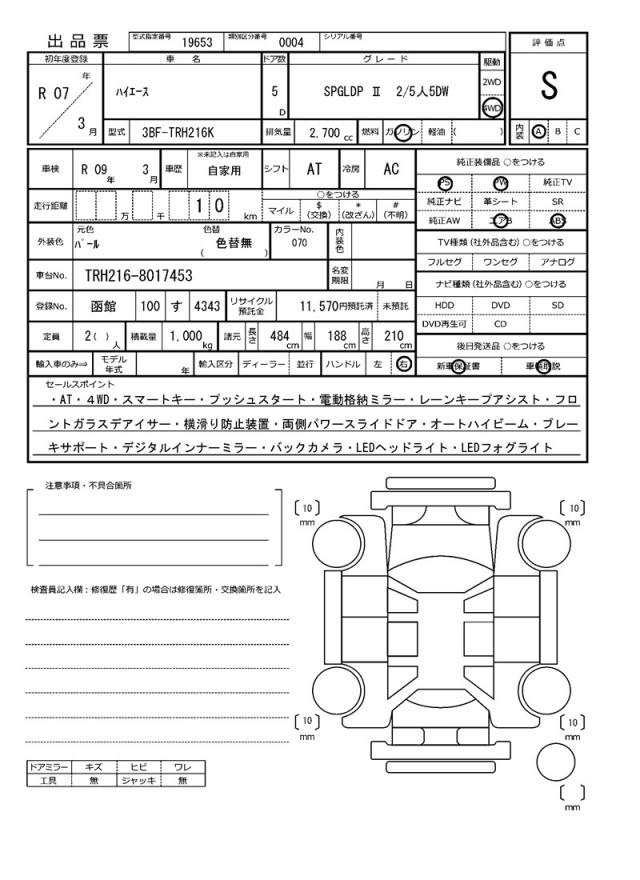 出品票 型式指定番号 19653 類別区分番号 0004 シリアル番号
初年度登録 車名 ドア数 グレード 駆動 評価点
R 07 年 3 月 ﾊｲｴｰｽ 5 D SPGLDP Ⅱ 2/5人5DW 2WD 4WD S
型式 3BF-TRH216K 排気量 2,700 cc 燃料 ガソリン 軽油 ( ) 内装 A B C
車検 R 09 年 3 月 車歴 ※未記入は自家用 自家用 シフト AT 冷房 AC 純正装備品 ○をつける
PS PW 純正TV
走行距離 万 千 1 0 km ○をつける マイル $ (交換) * (改ざん) # (不明) 純正ナビ 革シート SR
純正AW エアB ABS
外装色 元色 ﾊﾟｰﾙ 色替 色替無 ( ) カラーNo. 070 内装色 TV種類 (社外品含む) ○をつける
フルセグ ワンセグ アナログ
車台No. TRH216-8017453 名変期限 月 日 ナビ種類 (社外品含む) ○をつける
登録No. 函館 100 す 4343 リサイクル預託金 11,570円預託済 未預託 HDD DVD SD
DVD再生可 CD
定員 2( ) 人 積載量 1,000 kg 諸元 長さ 484 cm 幅 188 cm 高さ 210 cm 後日発送品 ○をつける
輸入車のみ⇒ モデル年式 年 輸入区分 ディーラー 並行 ハンドル 左 右 新車保証書 車輌取説
セールスポイント
・AT・４WD・スマートキー・プッシュスタート・電動格納ミラー・レーンキープアシスト・フロ
ントガラスデアイサー・横滑り防止装置・両側パワースライドドア・オートハイビーム・ブレー
キサポート・デジタルインナーミラー・バックカメラ・LEDヘッドライト・LEDフォグライト
注意事項・不具合箇所
〔10〕 mm 〔10〕 mm
検査員記入欄：修復歴「有」の場合は修復箇所・交換箇所を記入
〔10〕 mm 〔10〕 mm
ドアミラー キズ ヒビ ワレ
工具 無 ジャッキ 無
〔 〕 mm